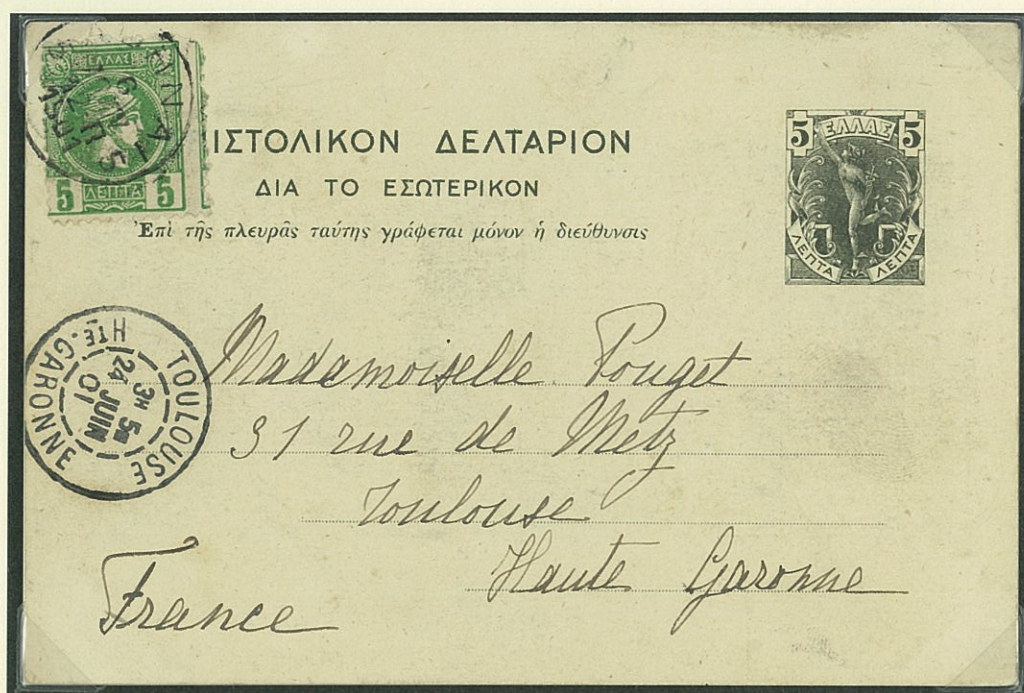 ΕΛΛΑΣ
5 ΛΕΠΤΑ 5
ΙΣΤΟΛΙΚΟΝ ΔΕΛΤΑΡΙΟΝ
ΔΙΑ ΤΟ ΕΣΩΤΕΡΙΚΟΝ
Ἐπὶ τῆς πλευρᾶς ταύτης γράφεται μόνον ἡ διεύθυνσις
5 ΕΛΛΑΣ 5
ΛΕΠΤΑ ΛΕΠΤΑ
TOULOUSE
3H 5M
24 JUIN
01
HTE-GARONNE
Mademoiselle Pouget
31 rue de Metz
Toulouse
Haute Garonne
France